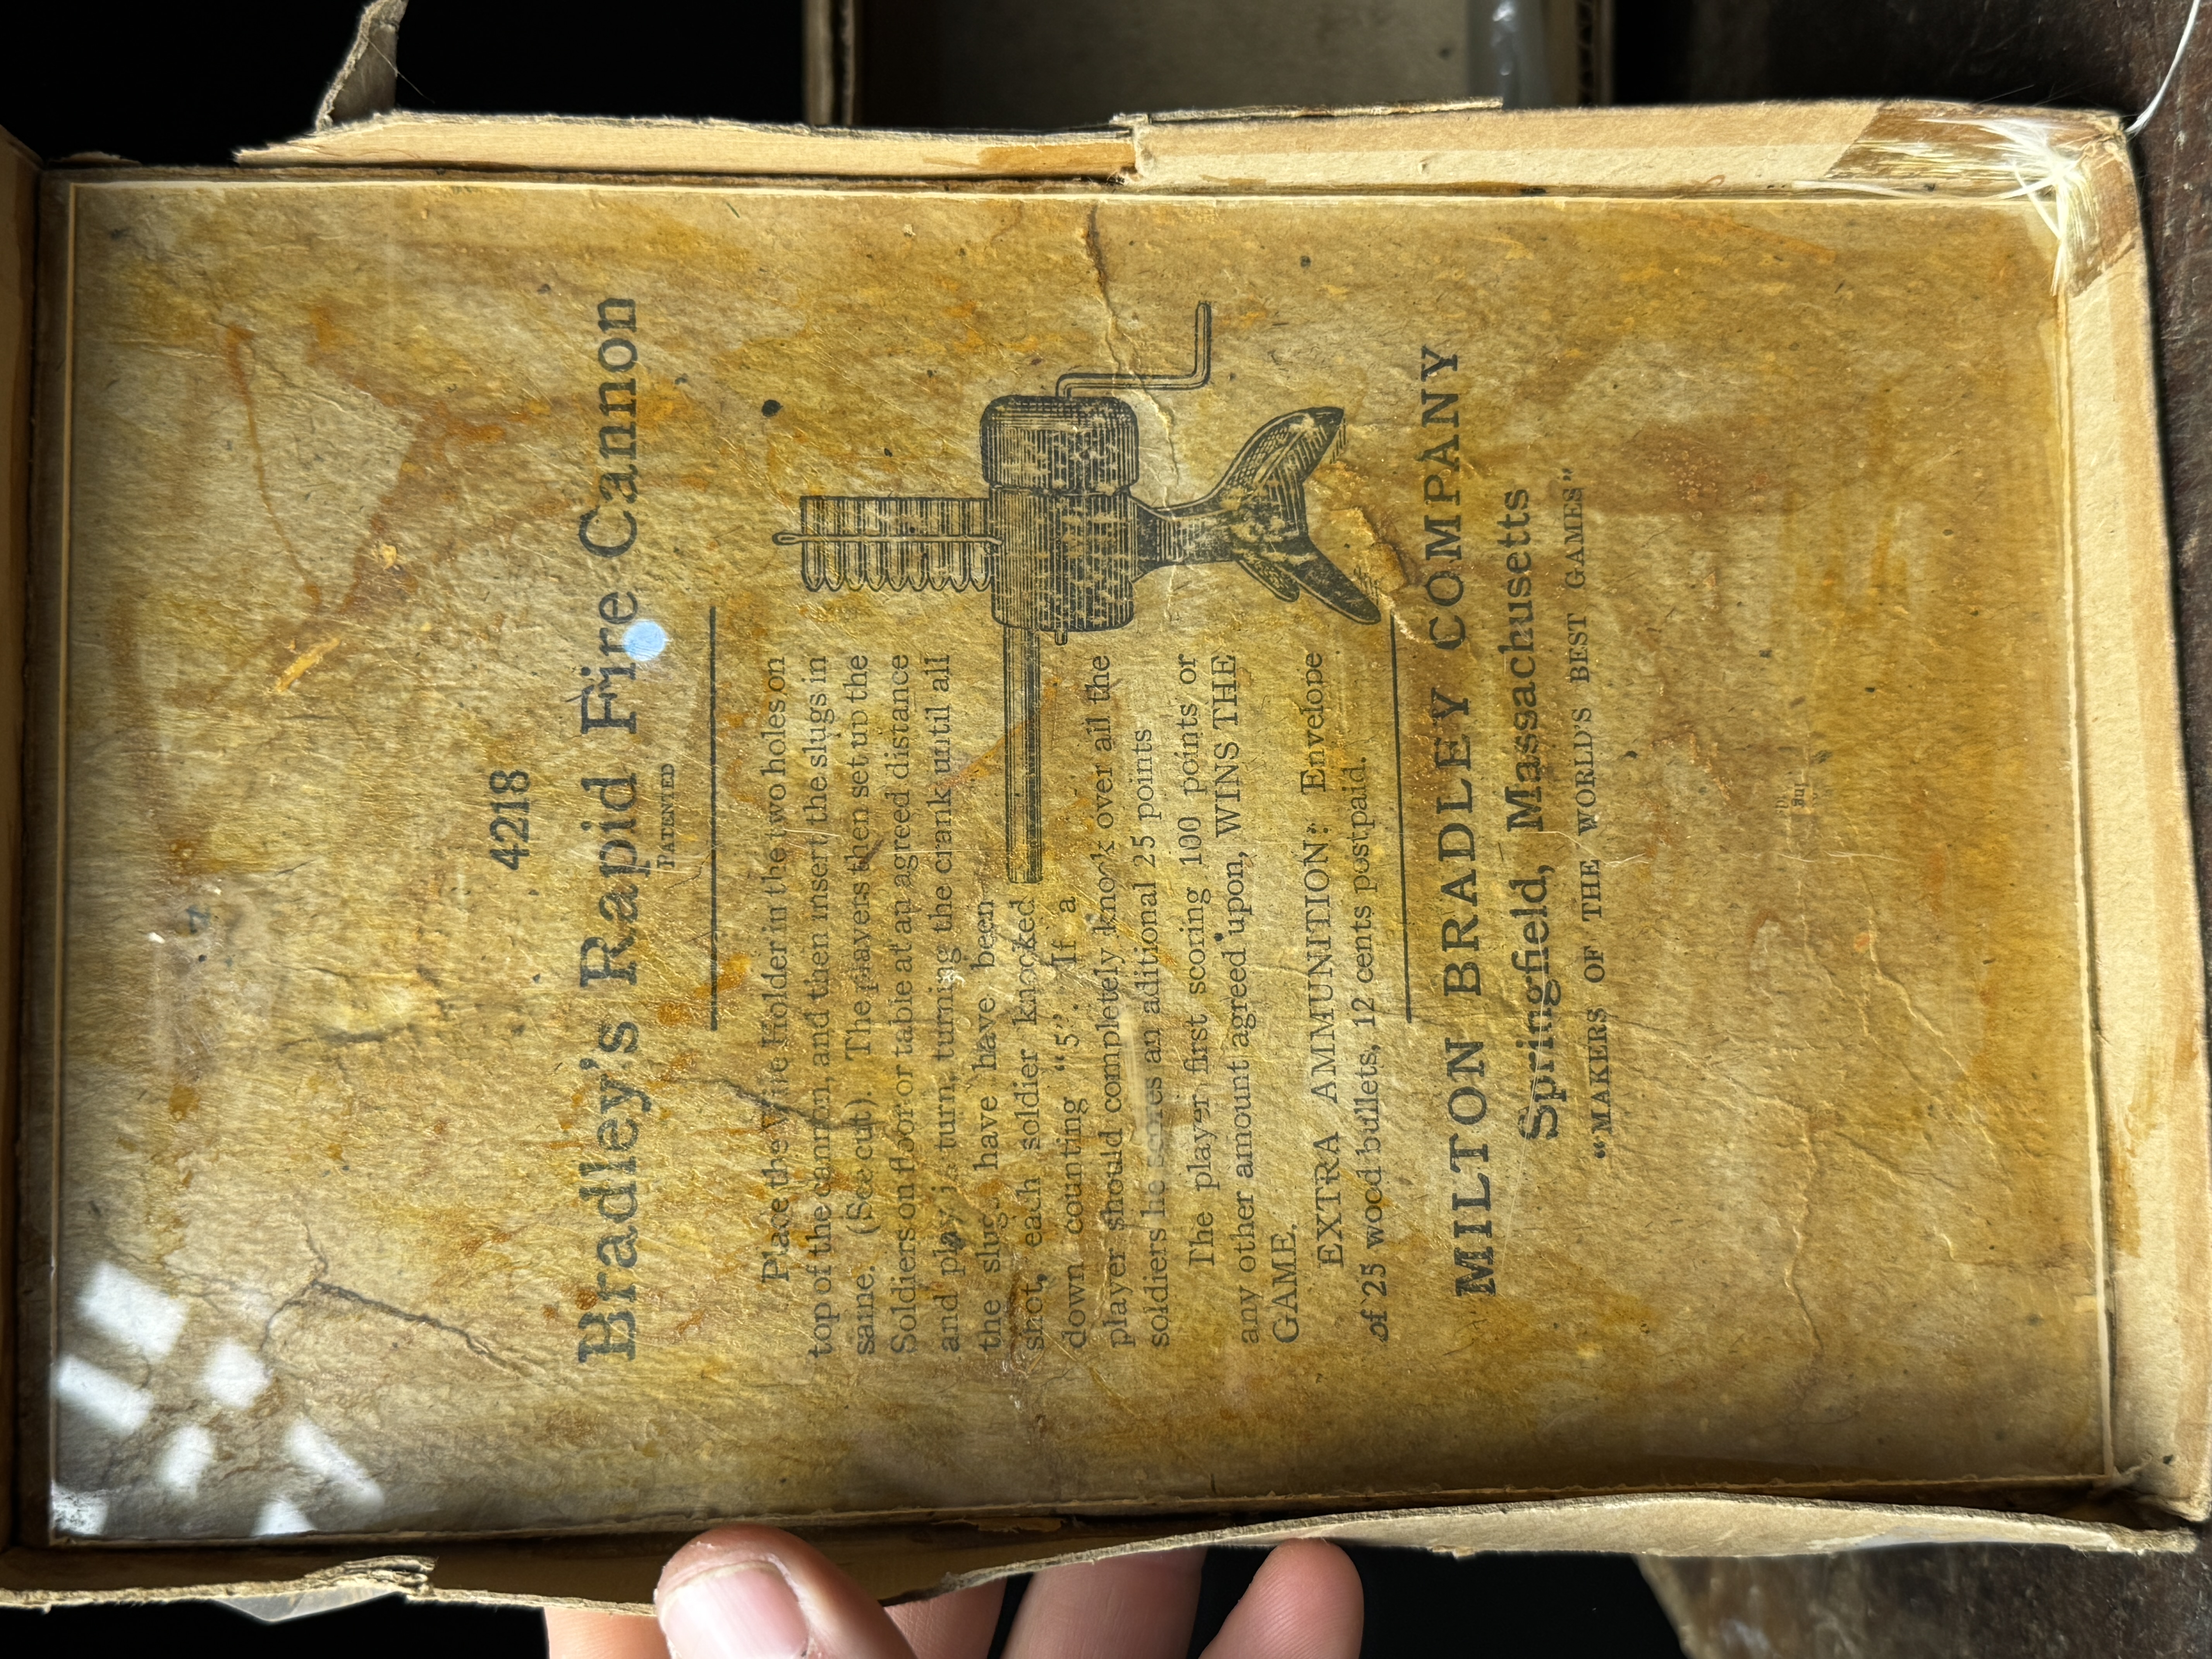 4218
Bradley's Rapid Fire Cannon
PATENTED
Place the Wire Holder in the two holes on
top of the cannon, and then insert the slugs in
same. (See cut). The players then set up the
Soldiers on floor or table at an agreed distance
and play in turn, turning the crank until all
the slugs have have been
shot, each soldier knocked
down counting "5". If a
player should completely knock over all the
soldiers he scores an aditional 25 points
The player first scoring 100 points or
any other amount agreed upon, WINS THE
GAME.
EXTRA AMMUNITION: Envelope
of 25 wood bullets, 12 cents postpaid.
MILTON BRADLEY COMPANY
Springfield, Massachusetts
"MAKERS OF THE WORLD'S BEST GAMES"